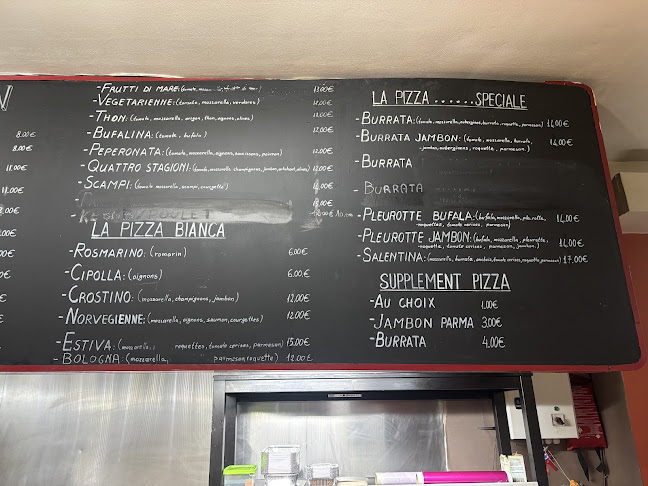 N
8.00€
8.00€
-FRUTTI DI MARE: 13.00€
-VEGETARIENNE: (tomate, mozzarella, verdures)
-THON: (tomate, mozzarella, origan, thon, oignons, olives) 12.00€
-BUFALINA: (tomate, bufala) 12.00€
-PEPERONATA: (tomate, mozzarella, oignons, saucissons, poivron)
-QUATTRO STAGIONI: (tomate, mozzarella, champignons, jambon, artichaut, olives)
-SCAMPI: (tomate, mozzarella, scampi, courgette)
LA PIZZA BIANCA
-ROSMARINO: (romarin) 6.00€
-CIPOLLA: (oignons) 6.00€
-CROSTINO: (mozzarella, champignons, jambon) 12.00€
-NORVEGIENNE: (mozzarella, oignons, saumon, courgettes) 12.00€
-ESTIVA: (mozzarella, roquettes, tomate cerises, parmesan) 15.00€
-BOLOGNA: (mozzarella, parmesan, roquette) 12.00€
LA PIZZA......SPECIALE
-BURRATA: (tomate, mozzarella, aubergines, burrata, roquette, parmesan) 14.00€
-BURRATA JAMBON: (tomate, mozzarella, burrata, 14.00€
jambon, aubergines, roquette, parmesan)
-BURRATA
-BURRATA
-PLEUROTTE BUFALA: (bufala, mozzarella, 14.00€
roquettes, tomate cerises, parmesan)
-PLEUROTTE JAMBON: (bufala, mozzarella, pleurotte, 14.00€
roquette, tomate cerises, parmesan, jambon)
-SALENTINA: (mozzarella, burrata, tomate cerises, roquette, parmesan) 17.00€
SUPPLEMENT PIZZA
-AU CHOIX 1.00€
-JAMBON PARMA 3.00€
-BURRATA 4.00€